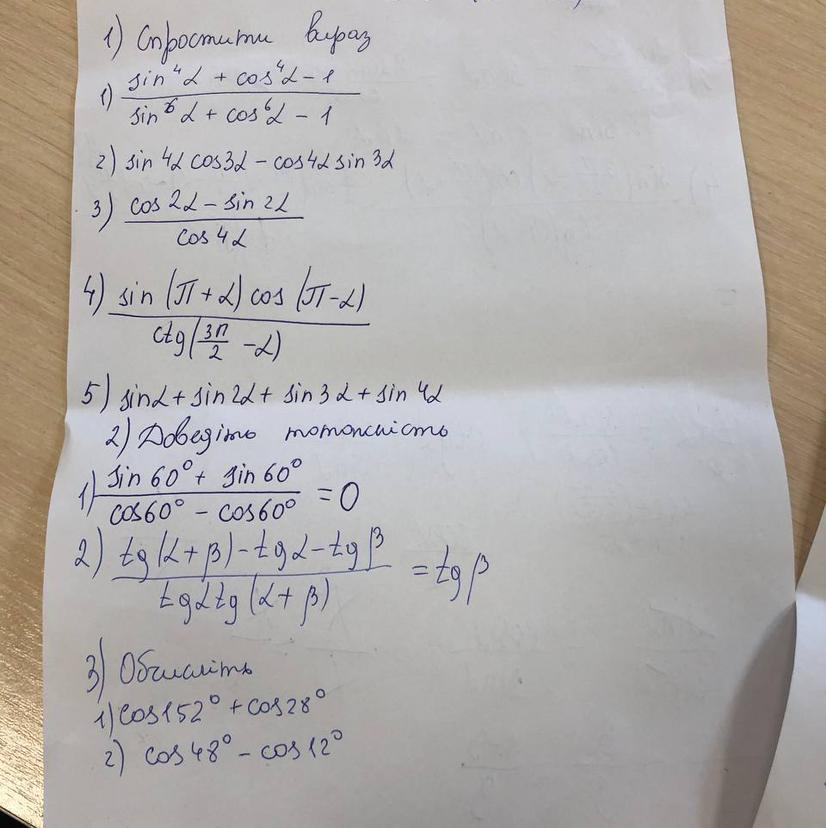 1) Спростити вираз
1) (sin⁴α + cos⁴α - 1) / (sin⁶α + cos⁶α - 1)
2) sin 4α cos3α - cos4α sin 3α
3) (cos 2α - sin 2α) / cos 4α
4) (sin (π + α) cos (π - α)) / ctg(3π/2 - α)
5) sinα + sin 2α + sin 3α + sin 4α
2) Доведіть тотожність
1) (sin 60° + sin 60°) / (cos60° - cos60°) = 0
2) (tg(α + β) - tgα - tgβ) / (tgα tg(α + β)) = tgβ
3) Обчисліть
1) cos152° + cos28°
2) cos48° - cos12°